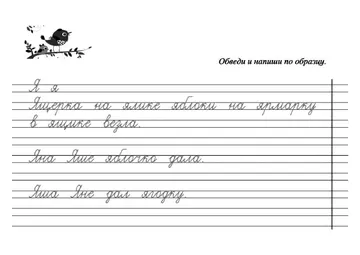 Обведи и напиши по образцу.
Я я
Ящерка на ялике яблоки на ярмарку
в ящике везла.
Яна Яше яблочко дала.
Яша Яне дал ягодку.